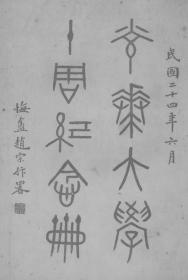 民國二十四年六月
光華大學
十周紀念冊
梅盦趙宗抃署